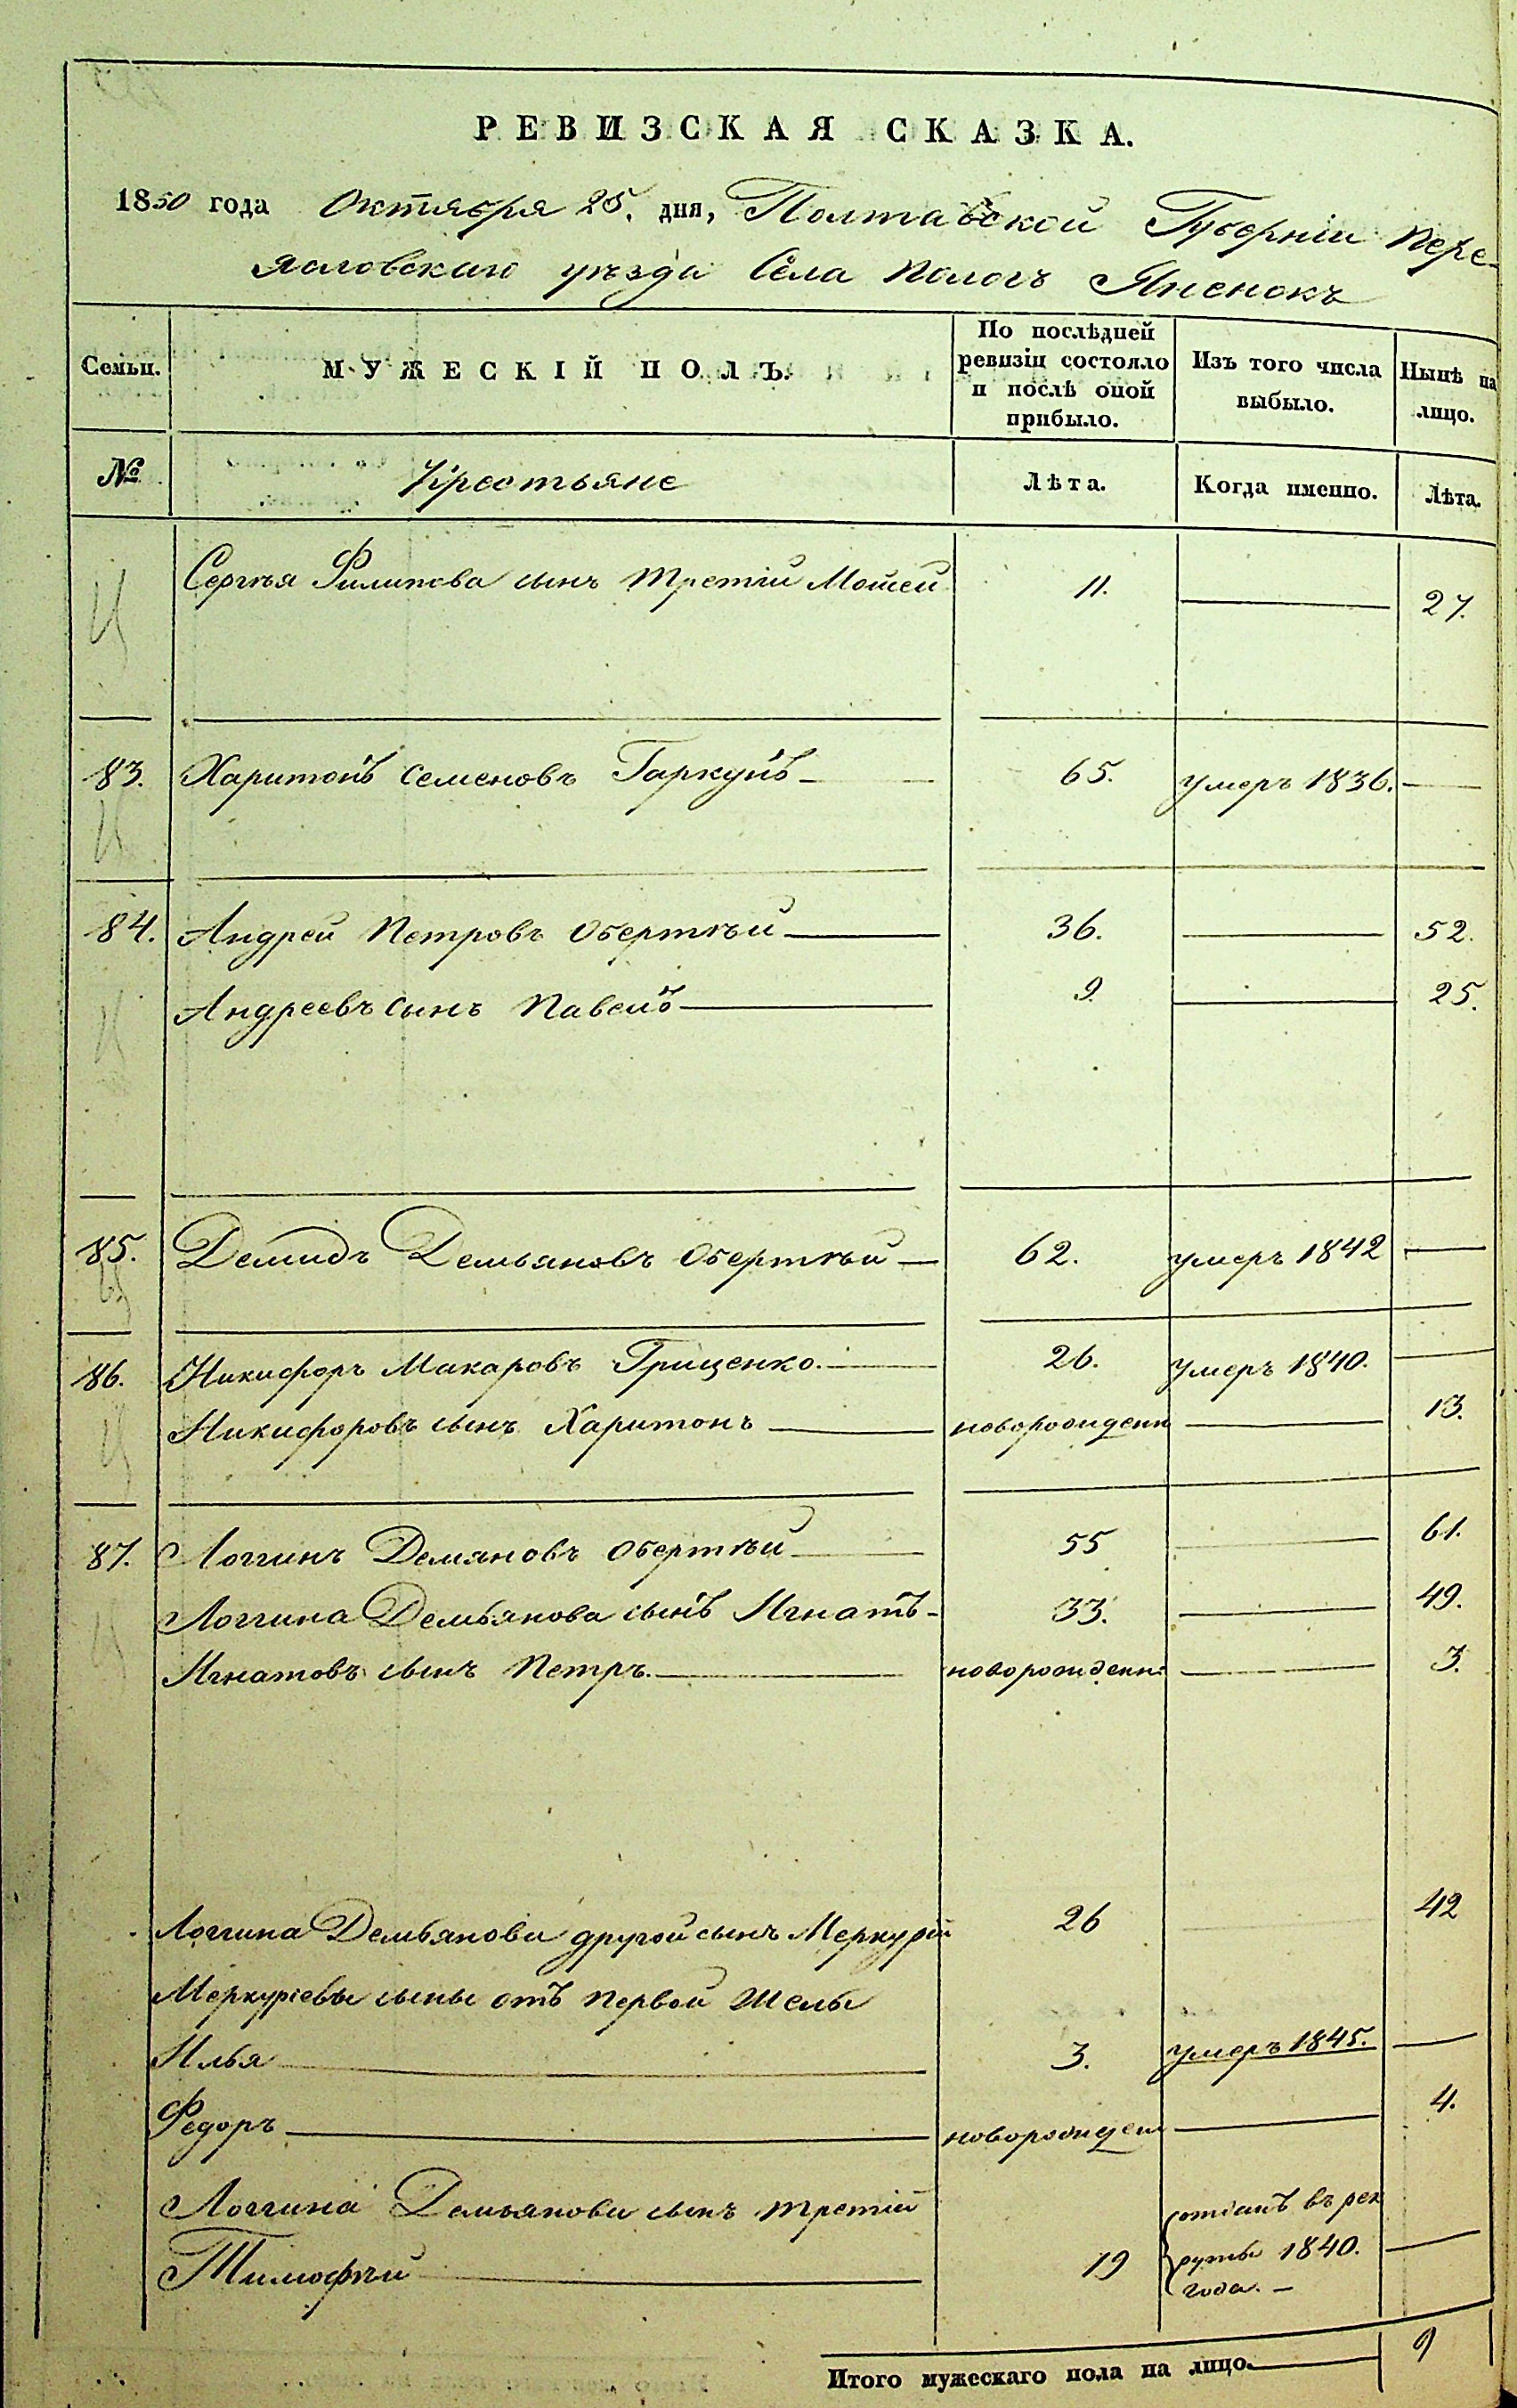 РЕВИЗСКАЯ СКАЗКА.
1850 года Октября 25. дня, Полтавской Губерніи Пере-
яславскаго уѣзда Села Пологъ Яненокъ
Семьи. МУЖЕСКІЙ ПОЛЪ. По послѣдней ревизіи состояло и послѣ оной прибыло. Изъ того числа выбыло. Нынѣ на лицо.
№ Крестьяне Лѣта. Когда именно. Лѣта.
Сергѣя Филипова сынъ третій Мойсей 11. 27.
83. Харитонъ Семеновъ Гаркунъ 65. умеръ 1836.
84. Андрей Петровъ Обертѣй 36. 52.
Андреевъ сынъ Павелъ 9. 25.
85. Демидъ Демьяновъ Обертѣй 62. умеръ 1842
86. Никифоръ Макаровъ Гриценко. 26. умеръ 1840.
Никифоровъ сынъ Харитонъ новорожденн 13.
87. Логгинъ Демяновъ Обертѣй 55 61.
Логгина Демьянова сынъ Игнатъ 33. 49.
Игнатовъ сынъ Петръ. новорожденн 3.
Логгина Демьянова другой сынъ Меркурій 26 42
Меркуріевы сыны отъ первой жены
Илья 3. умеръ 1845.
Федоръ новорожден 4.
Логгина Демьянова сынъ третій отданъ въ рек
Тимофѣй 19 руты 1840.
года.
Итого мужескаго пола на лицо. 9